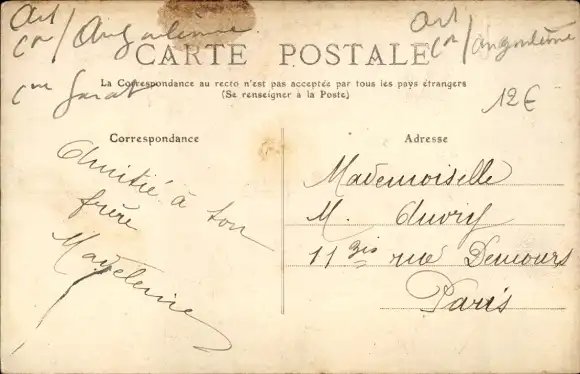 Art
Cn / Angoulême
Art
Cn / Angoulême
CARTE POSTALE
La Correspondance au recto n'est pas acceptée par tous les pays étrangers
(Se renseigner à la Poste)
12€
Correspondance
Amitié à ton
frère
Madeleine
Adresse
Mademoiselle
M.
11 bis rue Demours
Paris